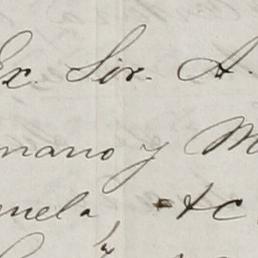 Ex. Sor. A.
mano y M
uela, &c